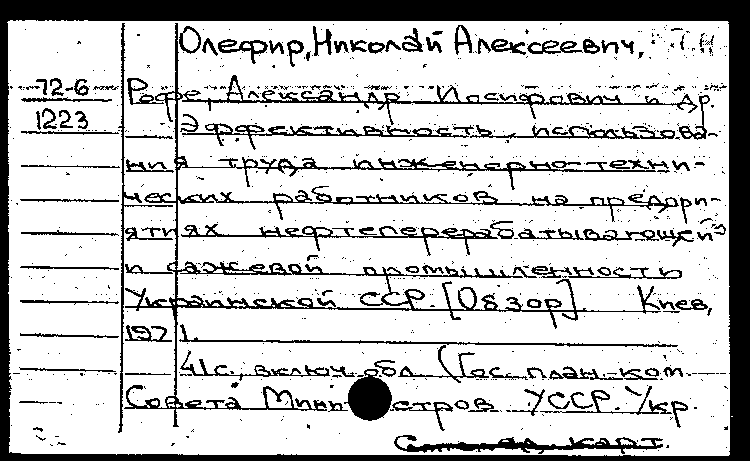 Олефир, Николай Алексеевич, Т.Н
72-6
1223
Рофе, Александр Иосифович и др.
Эффективность использова-
ния труда инженерно-техни-
ческих работников на предпри-
ятиях нефтеперерабатывающей
и сажевой промышленности
Украинской ССР. [Обзор]. Киев,
1971.
41с., включ. обл. (Гос. план. ком.
Совета Министров УССР. Укр.
карт.